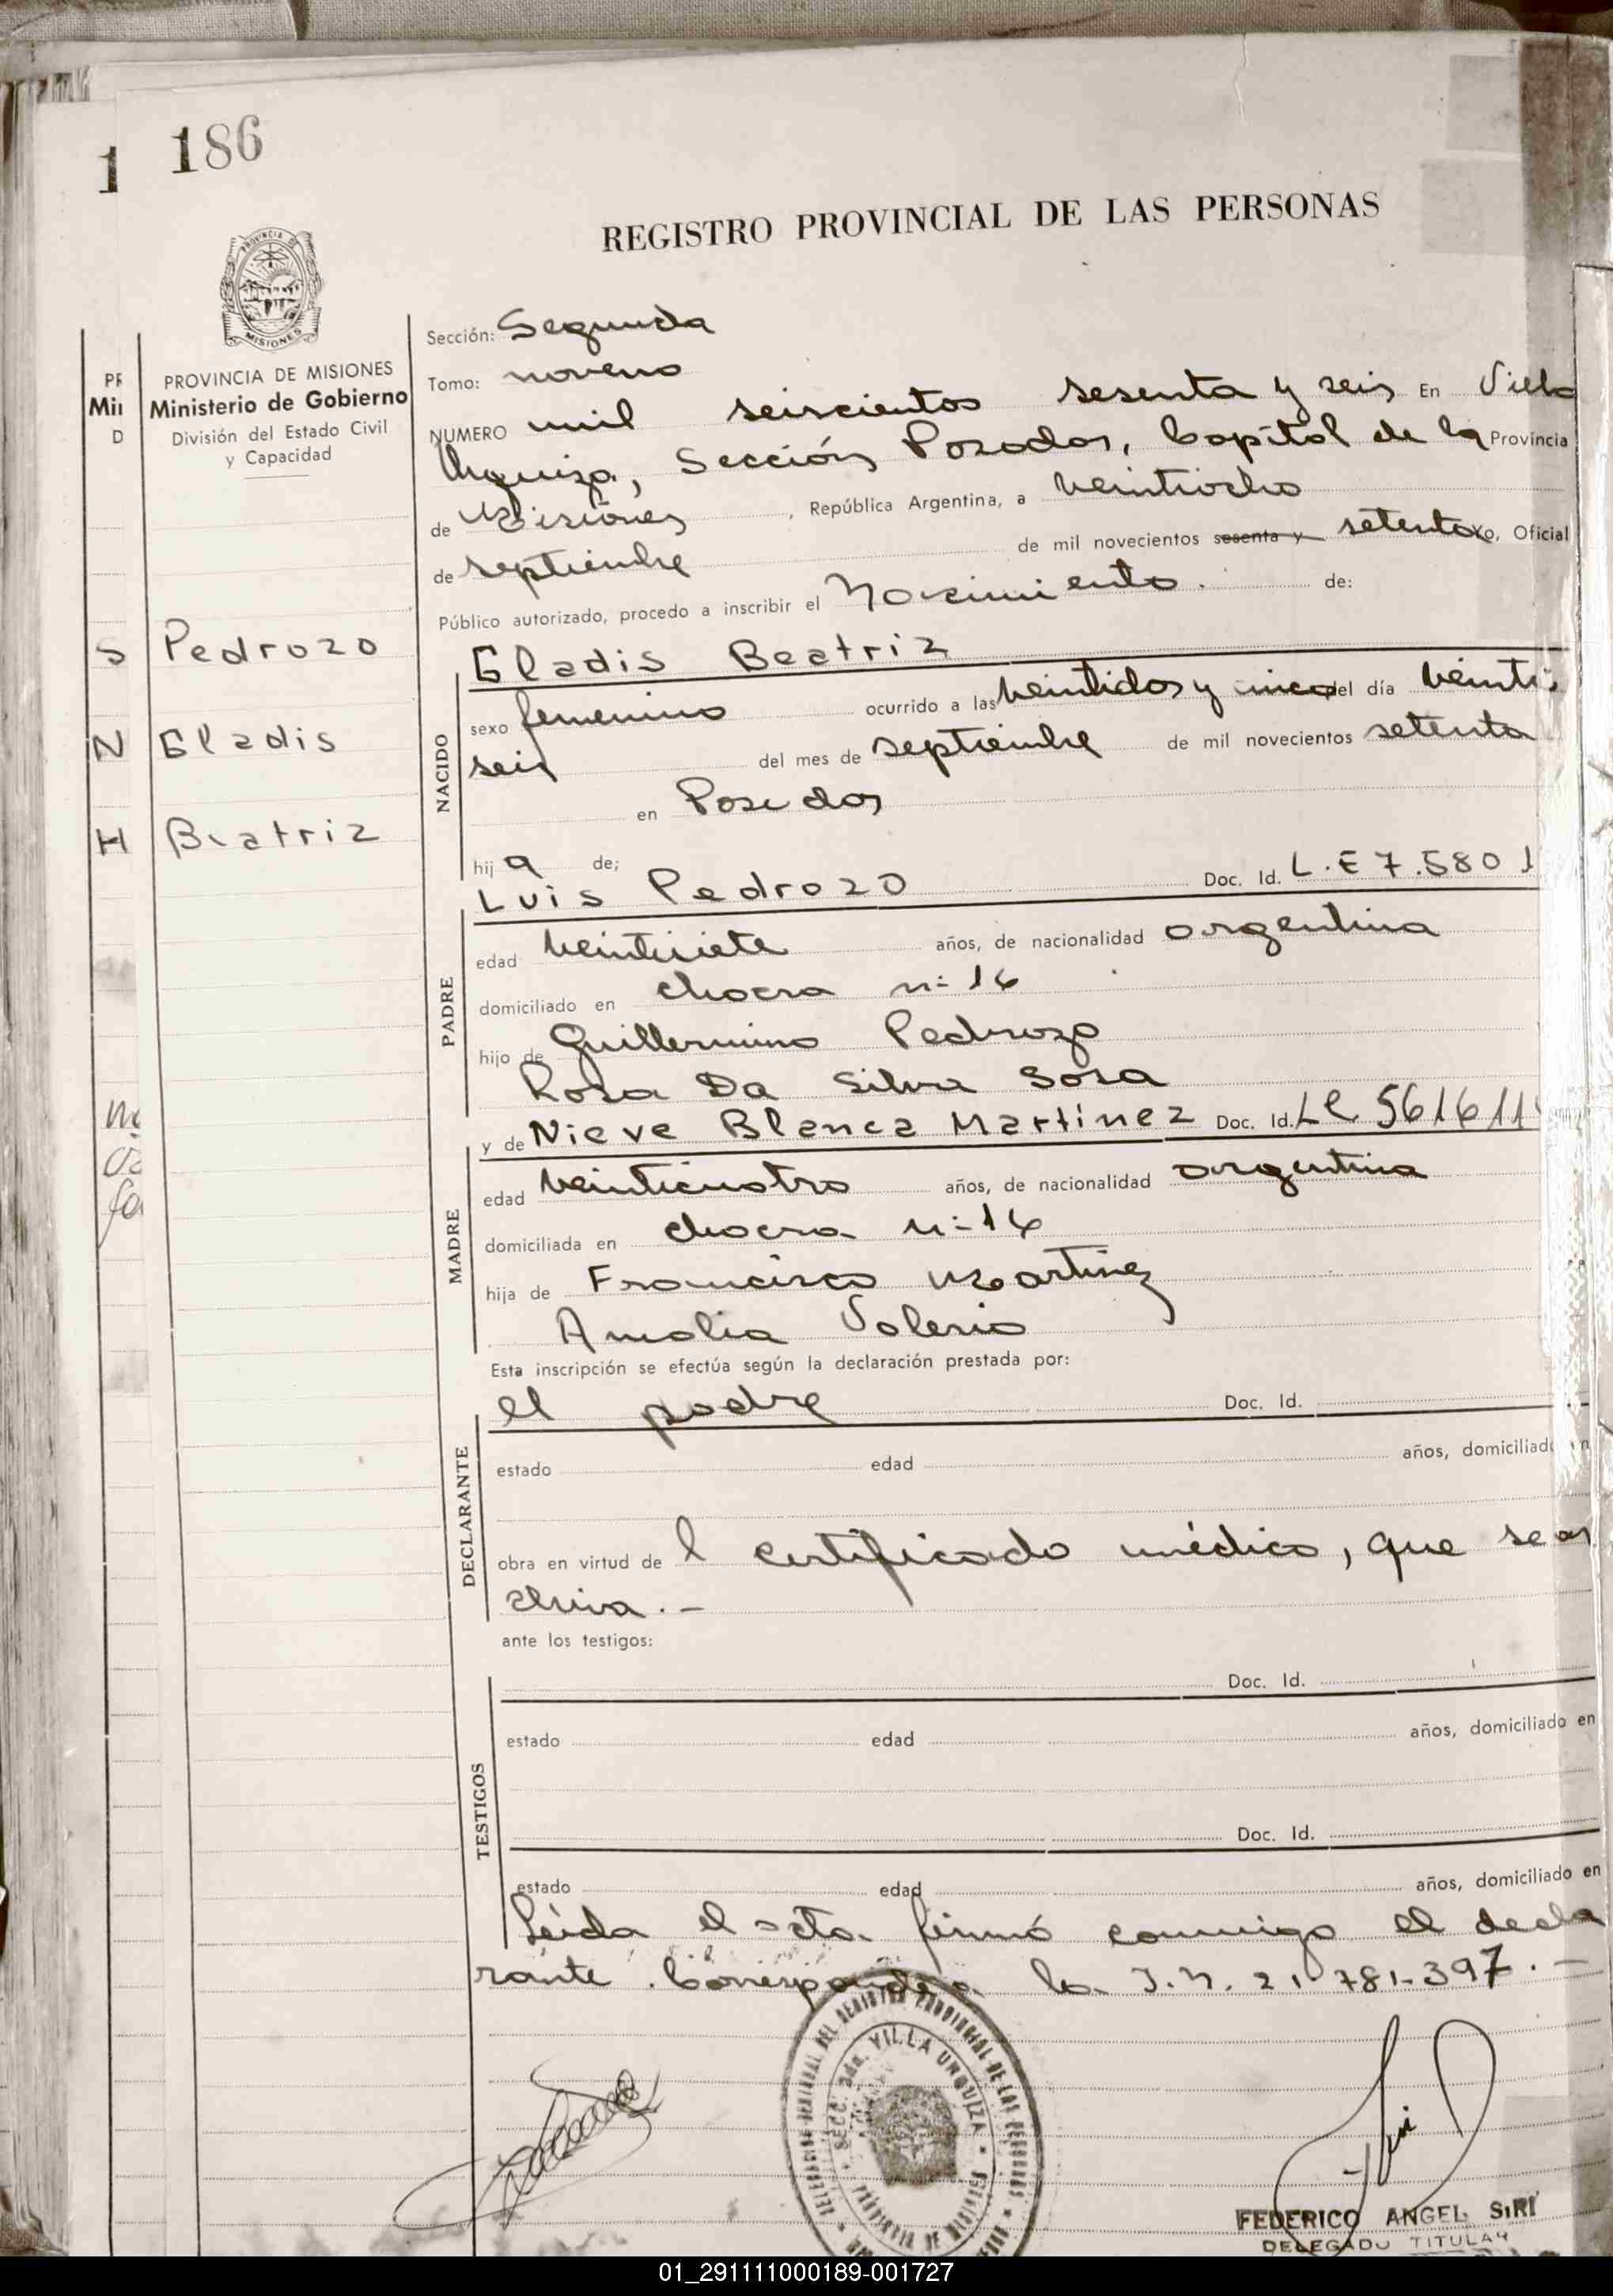 1 186
REGISTRO PROVINCIAL DE LAS PERSONAS
PROVINCIA DE
MISIONES
PROVINCIA DE MISIONES
Ministerio de Gobierno
División del Estado Civil
y Capacidad
S Pedrozo
N Gladis
H Beatriz
Sección: Segunda
Tomo: noveno
NUMERO mil seiscientos sesenta y seis En Villa
Urquiza, Sección Posadas, Capital de la Provincia
de Misiones, República Argentina, a veintiocho
de septiembre de mil novecientos sesenta y setenta Yo, Oficial
Público autorizado, procedo a inscribir el Nacimiento. de:
NACIDO
Gladis Beatriz
sexo femenino ocurrido a las veintidos y cinco del día veinti
seis del mes de septiembre de mil novecientos setenta
en Posadas
hija de;
PADRE
Luis Pedrozo Doc. Id. L.E 7.580
edad veintisiete años, de nacionalidad argentina
domiciliado en chacra n= 16
hijo de Guillermino Pedrozo
Rosa Da Silva Sosa
MADRE
y de Nieve Blanca Martinez Doc. Id. LC 561611
edad veinticuatro años, de nacionalidad argentina
domiciliada en chacra n= 16
hija de Francisco Martinez
Amalia Valerio
Esta inscripción se efectúa según la declaración prestada por:
DECLARANTE
el padre Doc. Id.
estado edad años, domiciliado en
obra en virtud de l certificado médico, que se ar
chiva.-
ante los testigos:
TESTIGOS
Doc. Id.
estado edad años, domiciliado en
Doc. Id.
estado edad años, domiciliado en
Leida el acta firmó conmigo el decla
rante. Corresponde a la I.N. 21.781.397.-
DELEGACION SECCIONAL DEL REGISTRO PROVINCIAL DE LAS PERSONAS
SECC. 2da. VILLA URQUIZA
PROVINCIA DE MISIONES
FEDERICO ANGEL SIRI
DELEGADO TITULAR
01_291111000189-001727